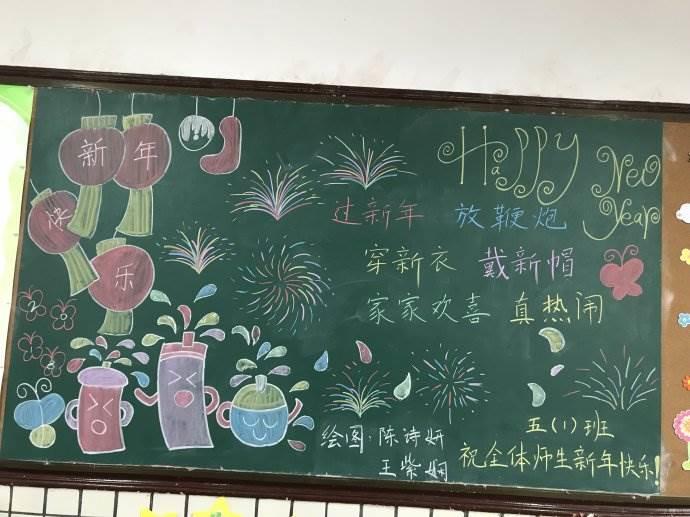 新年
快乐
HaPPY
New
Year
过新年 放鞭炮
穿新衣 戴新帽
家家欢喜 真热闹
绘图:陈诗妍
王紫娴
五(1)班
祝全体师生新年快乐!